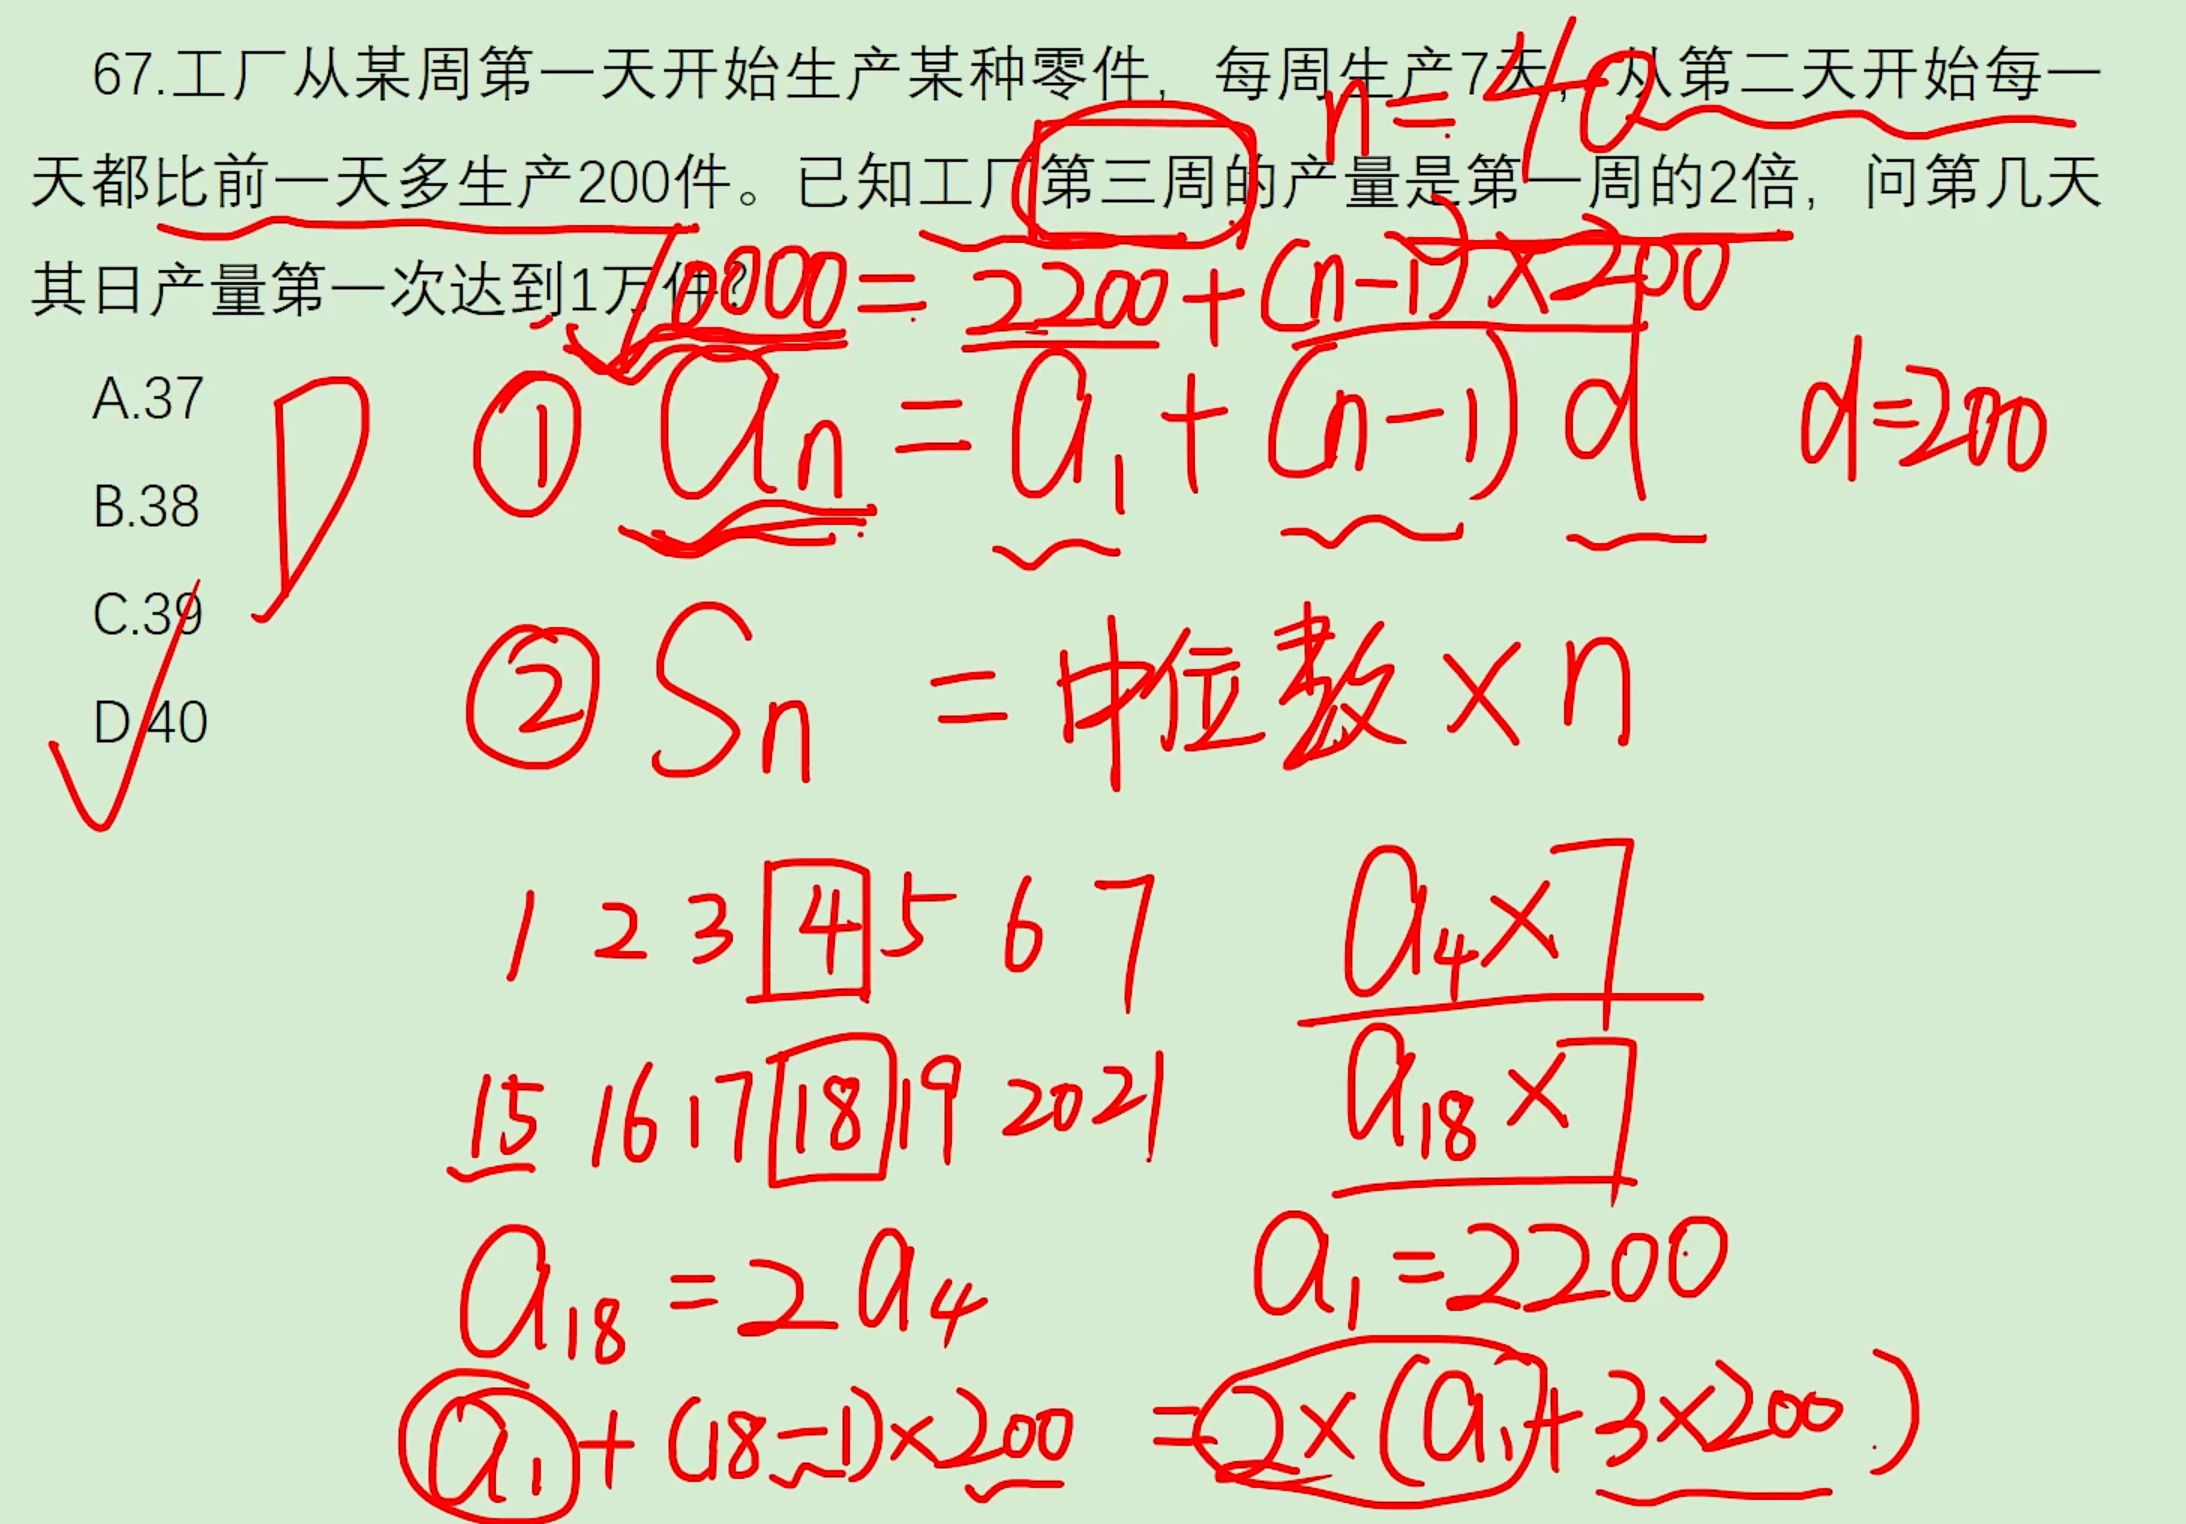 67.工厂从某周第一天开始生产某种零件，每周生产7天，从第二天开始每一
n=40
天都比前一天多生产200件。已知工厂第三周的产量是第一周的2倍，问第几天
其日产量第一次达到1万件？
10000=2200+(n-1)×200
A.37
D
① an=a1+(n-1)d
d=200
B.38
C.39
② Sn=中位数×n
D.40
1 2 3 4 5 6 7
a4×7
15 16 17 18 19 20 21
a18×7
a18=2a4
a1=2200
a1+(18-1)×200=2×(a1+3×200)